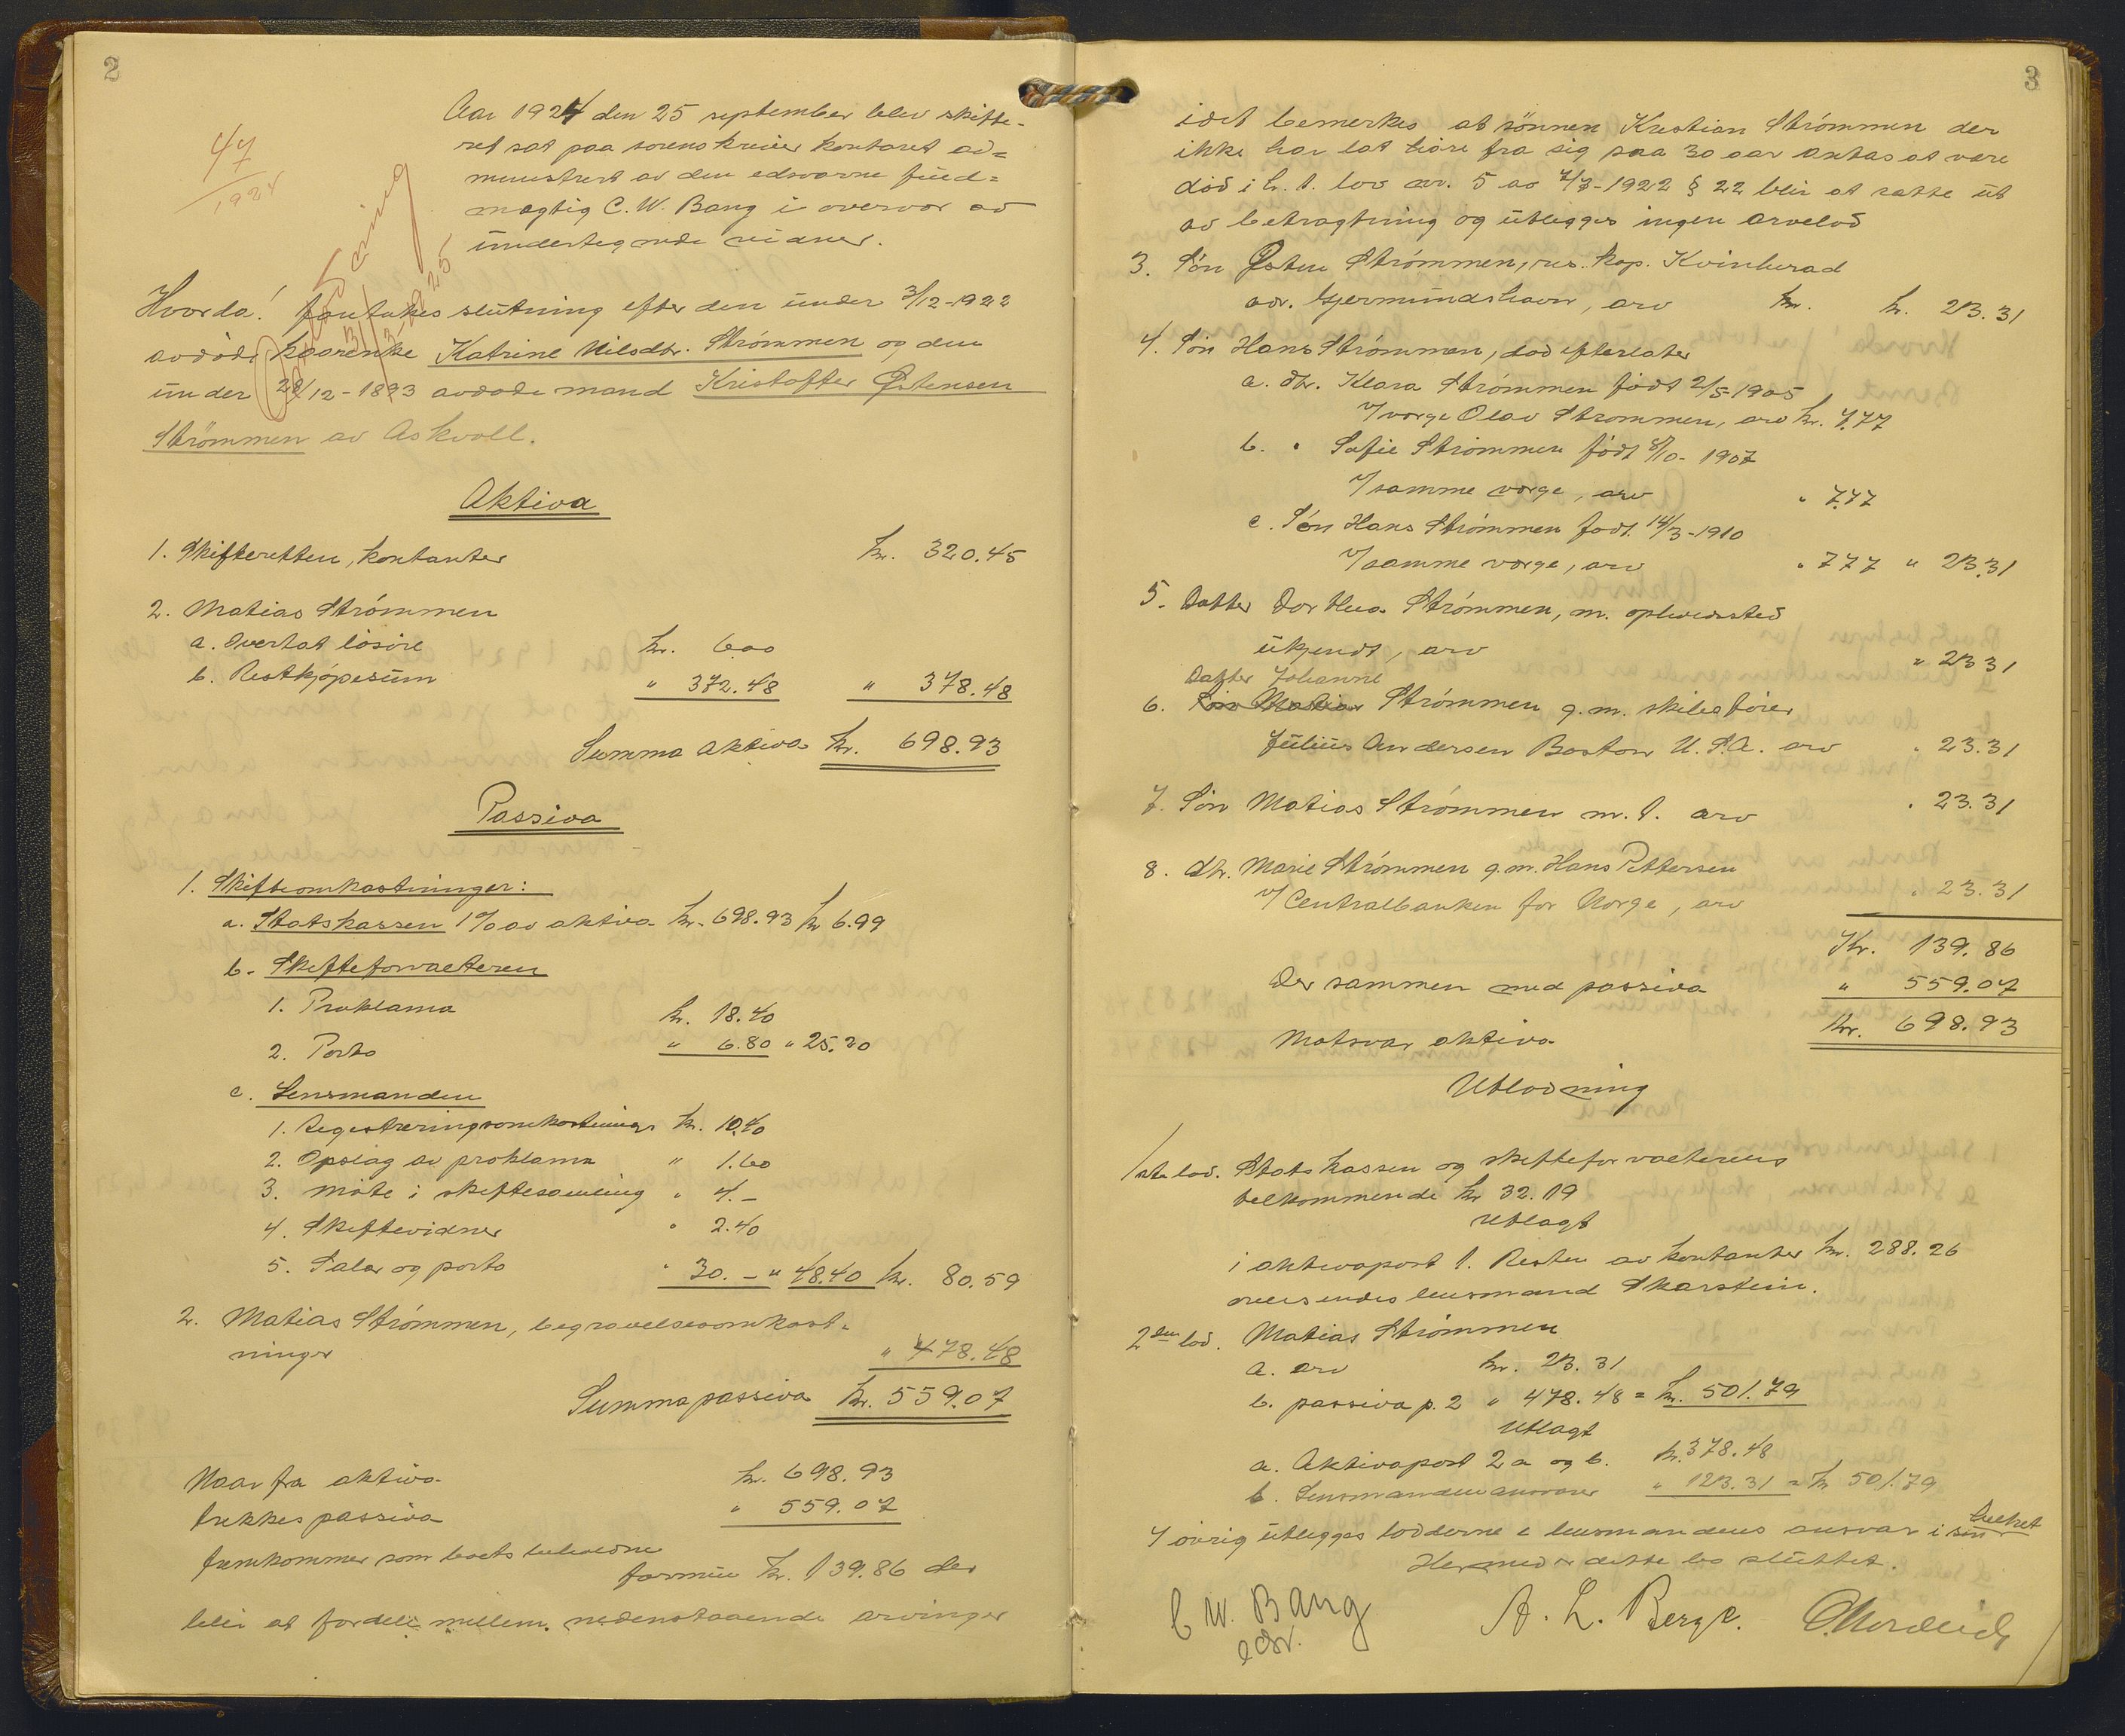 2
47
1924
Aar 1924 den 25 september blev skifte-
ret sat paa sorenskriver kontoret ad=
ministrert av den edsvorne fuld=
mægtig C. W. Bang i overvær av
undertegnede vidner.
Hvorda! foretokes slutning efter den under 3/12-1922
avdöde kaarenke Katrine Nilsdtr. Strömmen og den
under 28/12-1893 avdöde mand Kristoffer Østensen
Strömmen av Askvoll.
Aktiva
1. Skifteretten, kontanter kr. 320.45
2. Matias Strömmen
a. Overtat lösöre kr. 6.00
b. Restkjöpesum " 372.48 " 378.48
Summa aktiva kr. 698.93
Passiva
1. Skifteomkostninger:
a. Statskassen 1% av aktiva kr. 698.93 kr 6.99
b. Skifteforvalteren
1. Proklama kr. 18.40
2. Porto " 6.80 " 25.20
c. Lensmanden
1. Registreringsomkostninger kr. 10.40
2. Opslag av proklama " 1.60
3. Möte i skiftesamling " 4.-
4. Skiftevidner " 2.40
5. Salær og porto " 30.- " 48.40 kr. 80.59
2. Matias Strömmen, begravelsesomkost-
ninger " 478.48
Summa passiva kr. 559.07
Naar fra aktiva kr. 698.93
trekkes passiva " 559.07
fremkommer som boets beholdne
formue kr. 139.86 der
blir at fordele mellem nedenstaaende arvinger
3
idet bemerkes at sönnen Kristian Strömmen der
ikke har lat höre fra sig paa 30 aar antas at være
död i h. t. lov nr. 5 av 7/7-1922 § 22 blir at sætte ut
av betragtning og utlegges ingen arvelod
3. Sön Østen Strömmen, res. kap. Kvinherad
adr. Gjermundshavn, arv kr. kr. 23.31
4. Sön Hans Strömmen, död efterlater
a. dtr. Klara Strömmen födt 2/5-1905
v/ verge Olav Strömmen, arv kr. 7.77
b. " Sofie Strömmen födt 8/10-1907
v/ samme verge, arv " 7.77
c. Sön Hans Strömmen födt 14/3-1910
v/ samme verge, arv " 7.77 " 23.31
5. Datter Dorthea Strömmen, m. opholdssted
ukjendt, arv " 23.31
Datter Johanne
6. Sön Matias Strömmen g. m. skibsförer
Julius Andersen Boston U.S.A. arv " 23.31
7. Sön Matias Strömmen m. t. arv " 23.31
8. dtr. Marie Strömmen g. m. Hans Pettersen
v/ Centralbanken for Norge, arv " 23.31
Kr. 139.86
Der sammen med passiva " 559.07
Motsvar aktiva kr. 698.93
Utlodning
1ste lod. Statskassen og skifteforvalterens
tilkommende kr 32.19
Utlagt
i aktivapost 1. Resten av kontanter kr. 288.26
oversendes lensmand Skarstein.
2den lod. Matias Strömmen
a. arv kr. 23.31
b. passiva p. 2 " 478.48 = kr. 501.79
Utlagt
a. Aktivapost 2 a og b. kr. 378.48
b. Lensmandens ansvar " 123.31 = kr 501.79
I övrig utlegges lodderne i lensmandens ansvar i sin
helhet
Hermed er dette bo sluttet.
C W. Bang
edsv.
A. L. Berge.